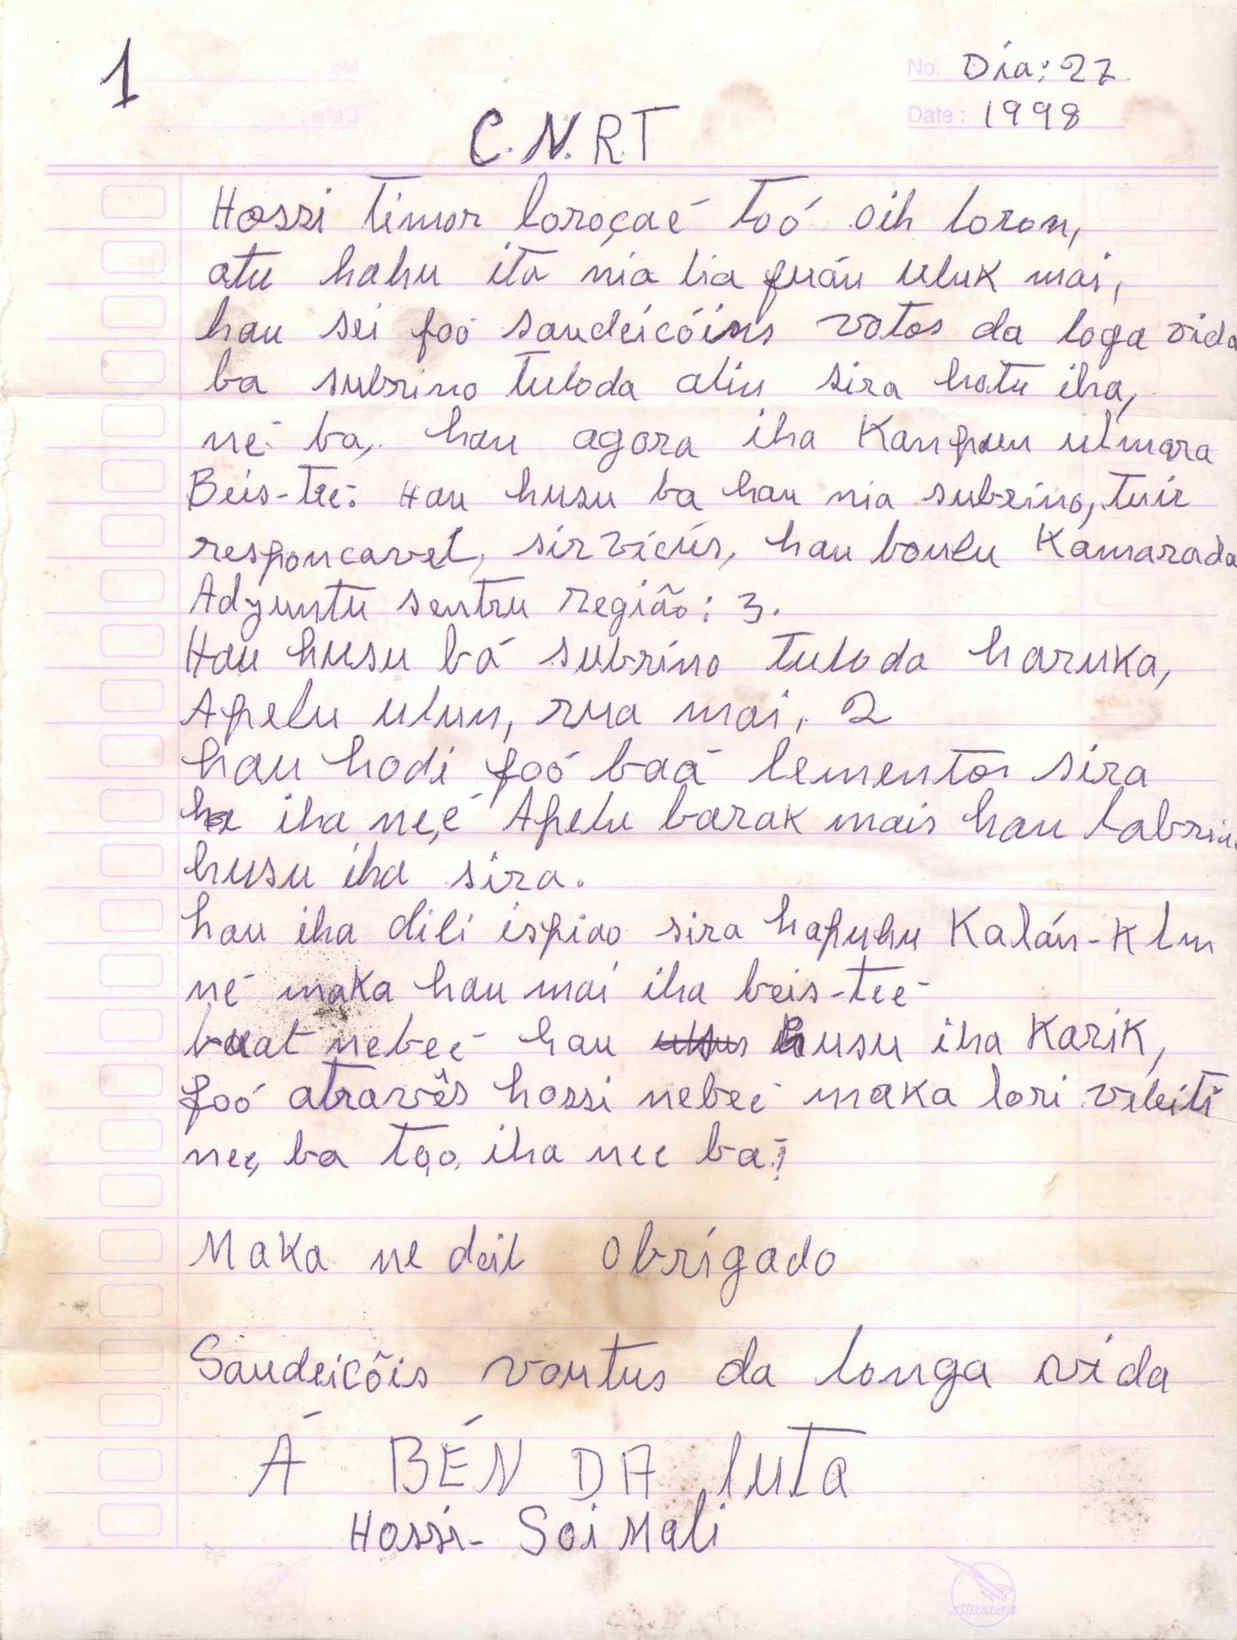 1
No. Día: 27
Date: 1998
C.N.R.T
Hossi timor loroçaé toó oih loron,
atu hahu ita nia lia fuán uluk mai,
hau sei foó saudeicóins votos da loga vida
ba subrino tuloda alin sira hotu iha,
né ba, hau agora iha Kanpun ulmera
Beis-Tee: Hau husu ba hau nia subrino, tuir
responcavel, sirvicús, hau boulu Kamarada
Adyuntu sentru região: 3.
Hau husu bá subrino tuloda haruka,
Apelu ulun, rua mai, 2
hau hodi foó baá lementos sira
iha neé Apelu barak mais hau labrin
husu iha sira.
hau iha dili ispiao sira hapuhu Kalán-Klin
né maka hau mai iha beis-teé
buat nebeé hau husu iha Karik,
foó atravês hossi nebeé maka lori viliti
nee, ba too, iha nee ba!
Maka ne deit obrígado
Saudeicôis voutus da longa vida
Á BÉN DA luta
Hossi- Soi Mali